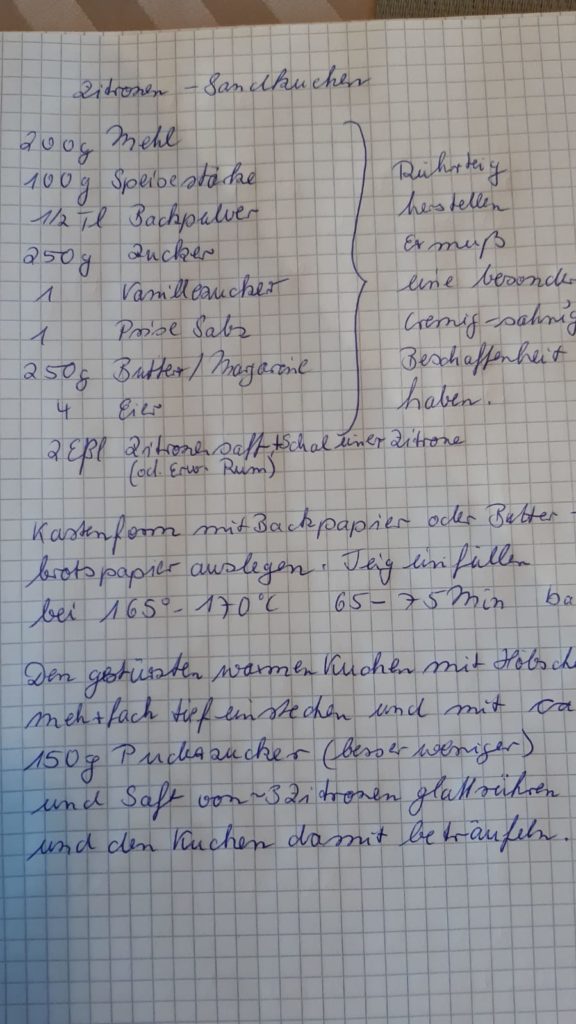 Zitronen - Sandkuchen
200g Mehl
100g Speisestärke
1/2 Tl Backpulver
250g Zucker
1 Vanillezucker
1 Prise Salz
250g Butter/Magarine
4 Eier
2 Eßl Zitronensaft + Schal einer Zitrone
(od. Erw. Rum)
Rührteig
herstellen
Er muß
eine besonde
Cremig-sahnig
Beschaffenheit
haben.
Kastenform mit Backpapier oder Butter-
brotspapier auslegen. Teig einfüllen
bei 165°-170°C 65-75 Min ba
Den gestürzten warmen Kuchen mit Holzsch
mehrfach tief einstechen und mit ca
150g Puderzucker (besser weniger)
und Saft von ~3 Zitronen glattrühren
und den Kuchen damit beträufeln.